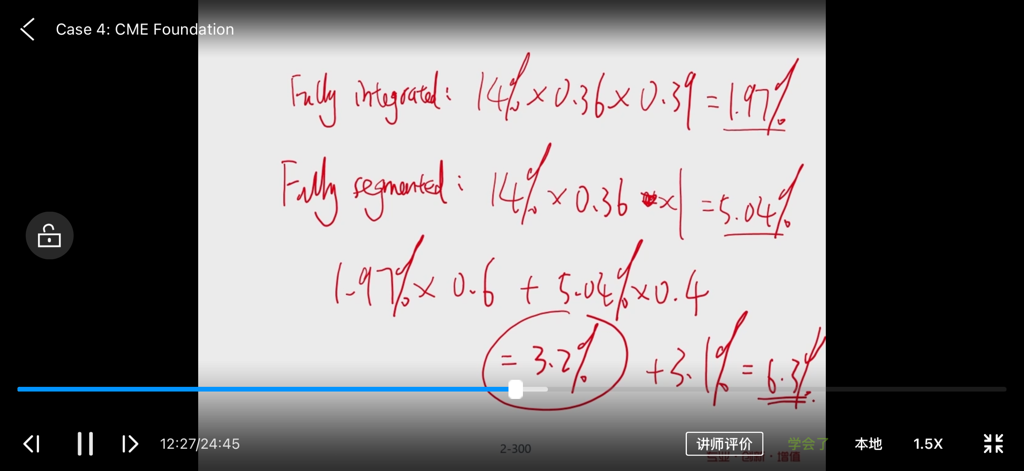 Case 4: CME Foundation
Fully integrated: 14% × 0.36 × 0.39 = 1.97%
Fully segmented: 14% × 0.36 × 1 = 5.04%
1.97% × 0.6 + 5.04% × 0.4
= 3.2% + 3.1% = 6.3%
12:27/24:45
2-300
讲师评价
学会了
本地
1.5X
增值